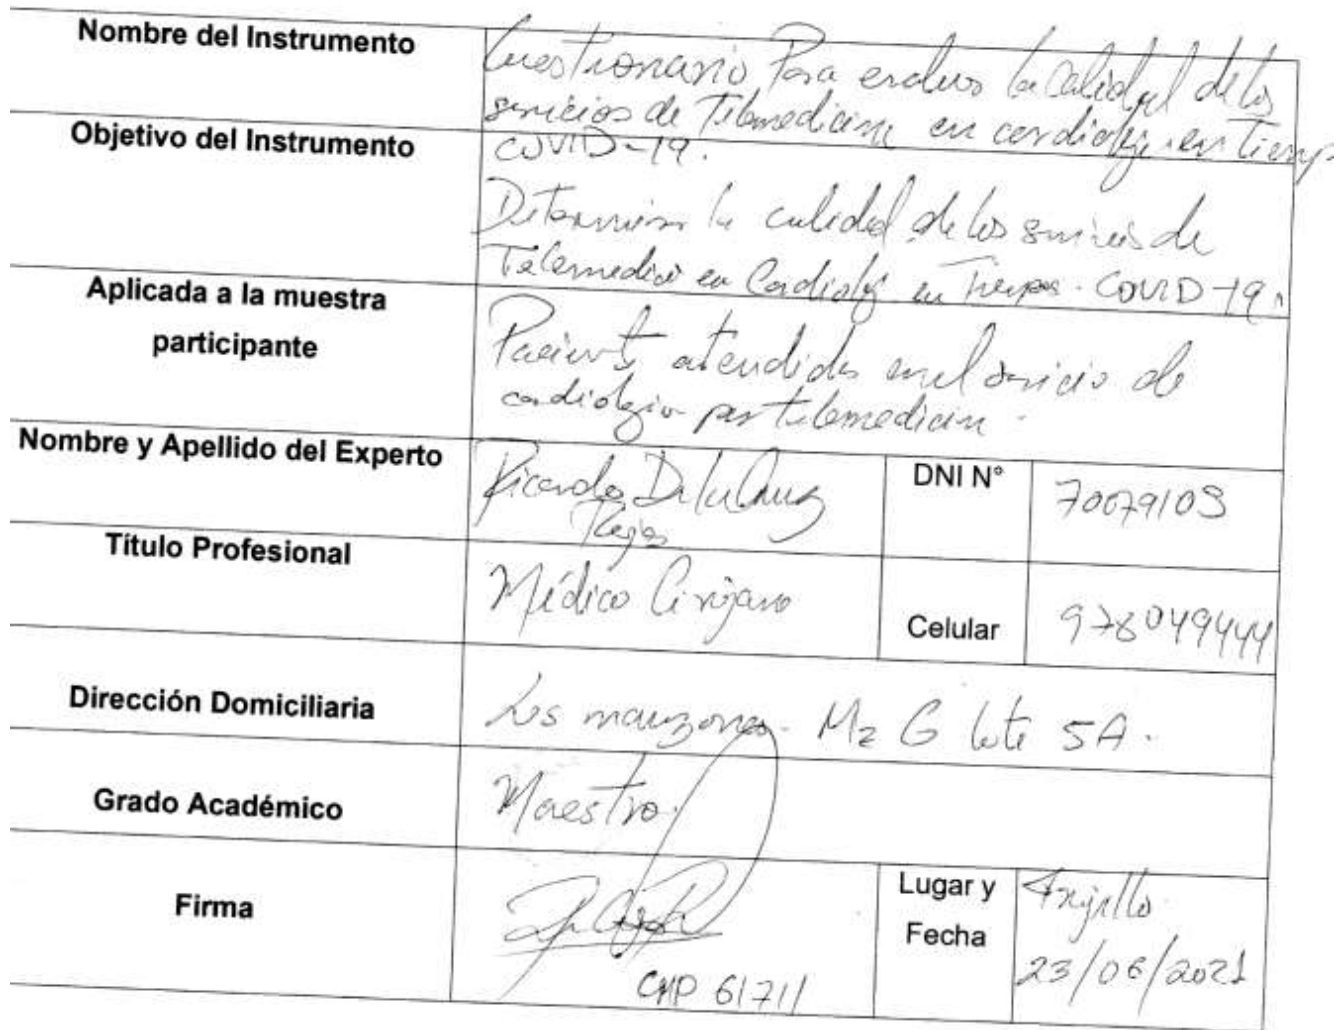 Nombre del Instrumento
Cuestionario Para evaluar la Calidad de los
servicios de Telemedicina en cardiología en tiempo
COVID-19.
Objetivo del Instrumento
Determinar la calidad de los servicios de
Telemedicina en Cardiología en Tiempos COVID-19.
Aplicada a la muestra
participante
Pacientes atendidos en el servicio de
cardiología por telemedicina.
Nombre y Apellido del Experto
Ricardo De la Cruz
DNI N°
Título Profesional
Médico Cirujano
Celular
978049444
Dirección Domiciliaria
Los manzanos. Mz G lote 5A.
Grado Académico
Maestro
Firma
CMP 61711
Lugar y
Fecha
Trujillo
23/06/2021